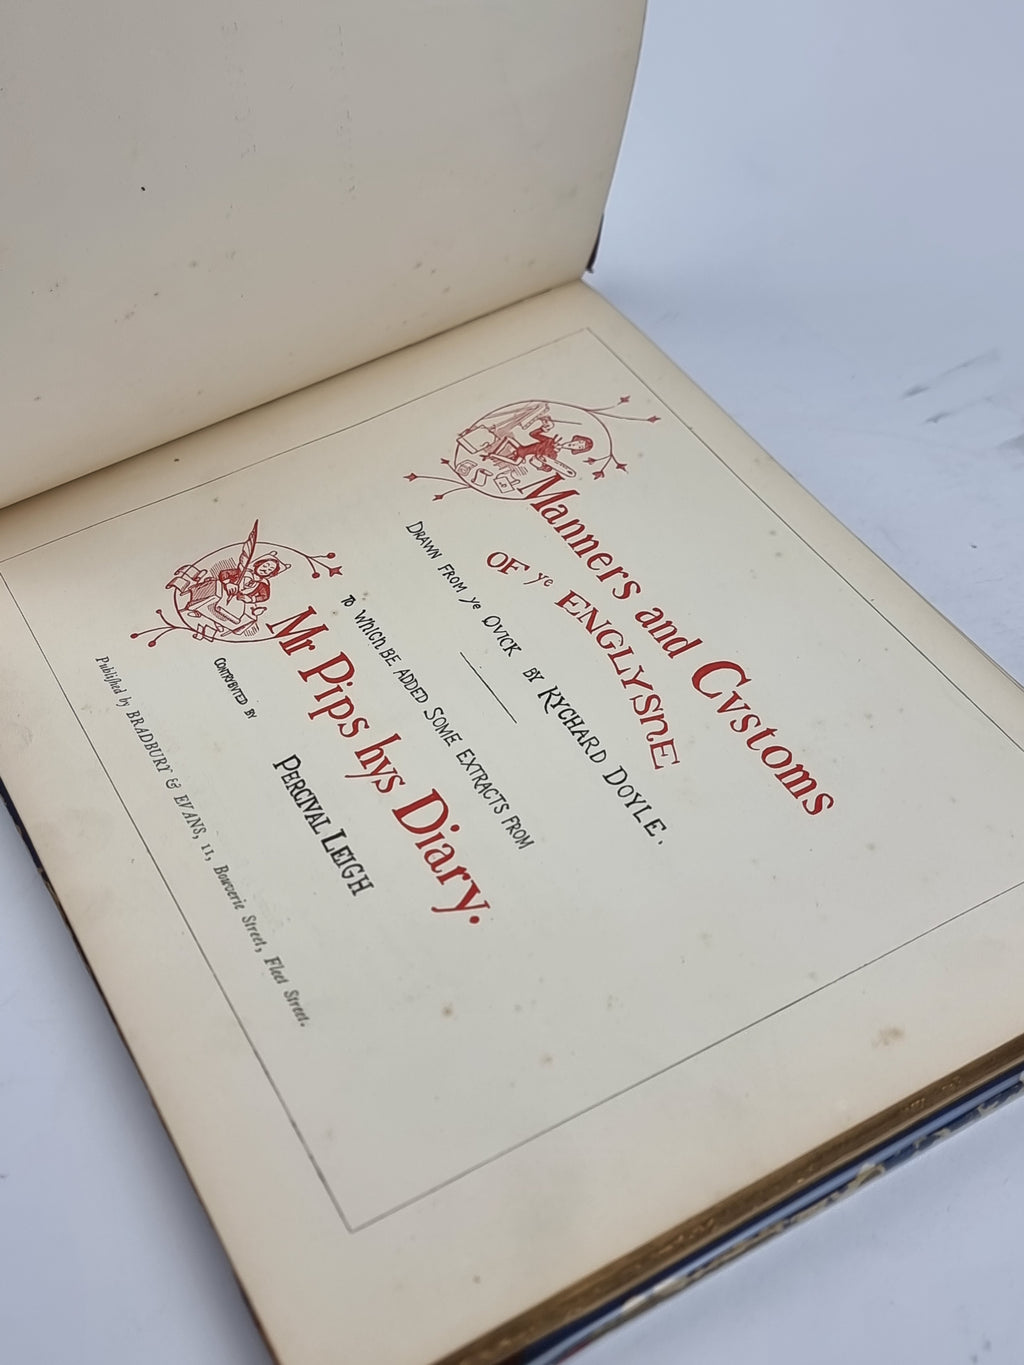 Manners and Cvstoms
OF ye ENGLYSNE
DRAWN FROM ye QVICK BY RYCHARD DOYLE.
TO WHICH BE ADDED SOME EXTRACTS FROM
Mr Pips hys Diary.
CONTRIBUTED BY
PERCIVAL LEIGH
Published by BRADBURY & EVANS, 11, Bouverie Street, Fleet Street.